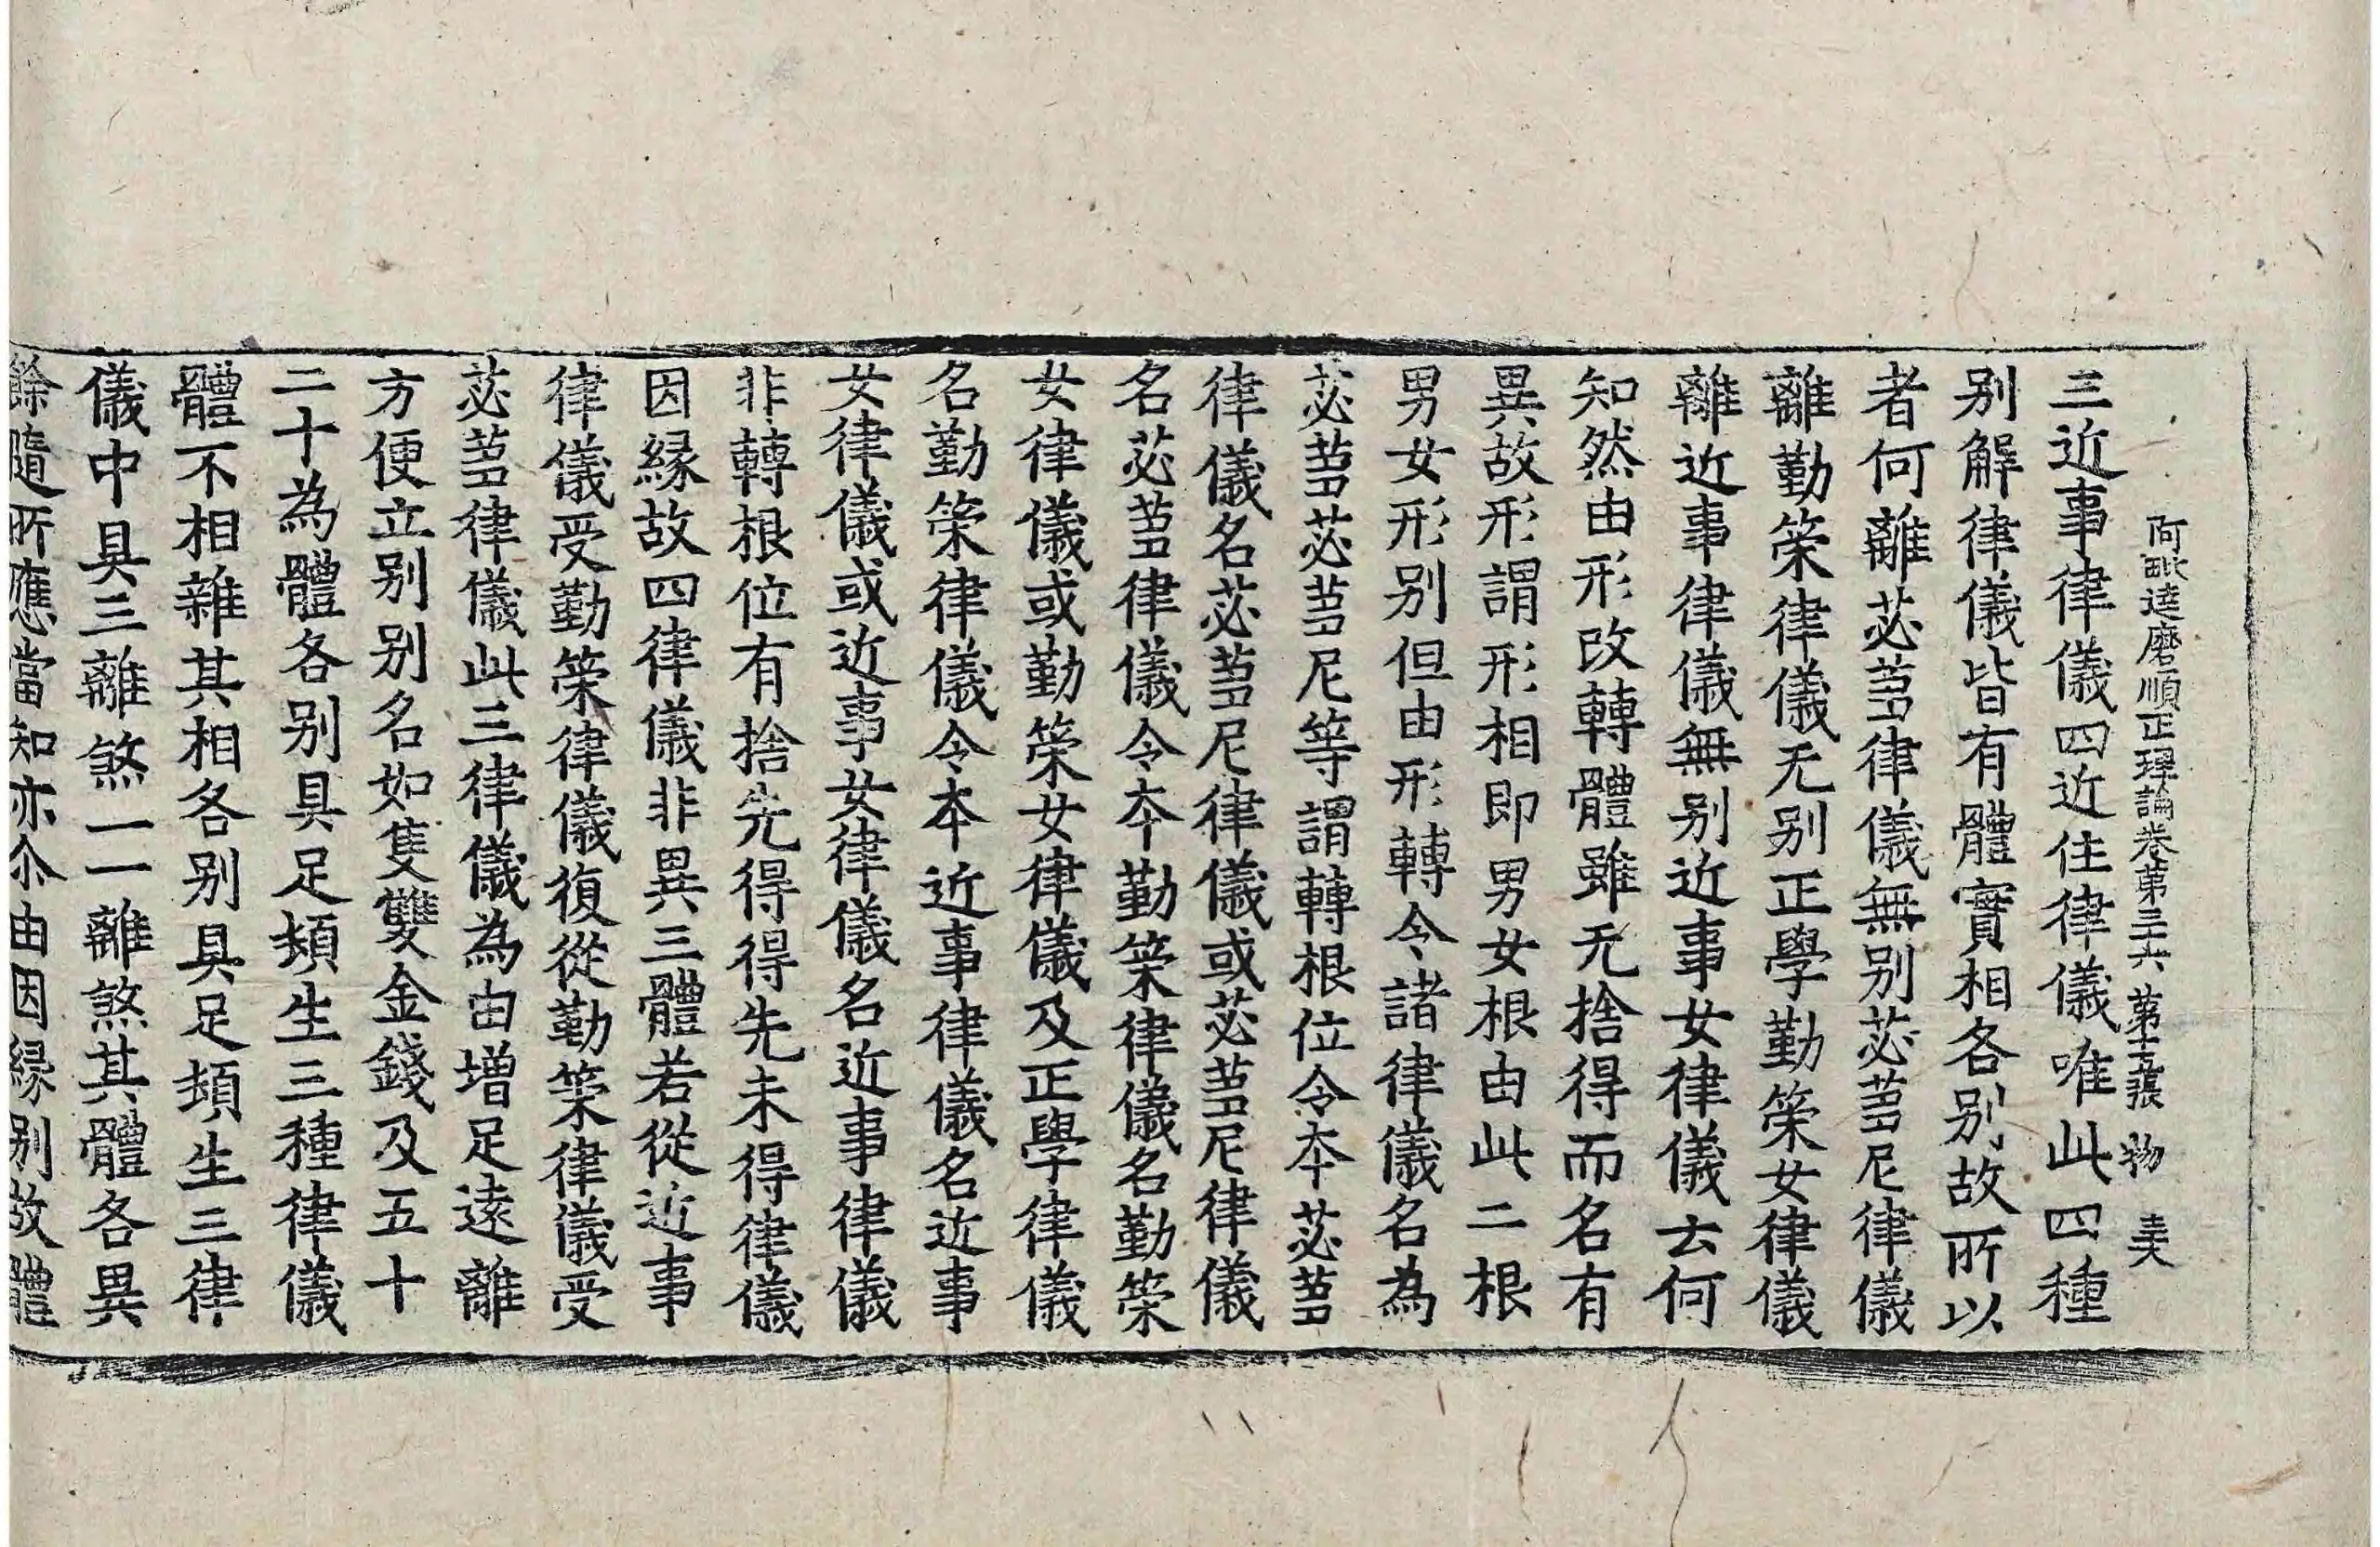 阿毗達磨順正理論卷第三十六 第十五張 物
三近事律儀四近住律儀唯此四種
别解律儀皆有體實相各别故所以
者何離苾蒭律儀無别苾蒭尼律儀
離勤策律儀无别正學勤策女律儀
離近事律儀無别近事女律儀云何
知然由形改轉體雖无捨得而名有
異故形謂形相即男女根由此二根
男女形别但由形轉令諸律儀名為
苾蒭苾蒭尼等謂轉根位令夲苾蒭
律儀名苾蒭尼律儀或苾蒭尼律儀
名苾蒭律儀令夲勤策律儀名勤策
女律儀或勤策女律儀及正學律儀
名勤策律儀令夲近事律儀名近事
女律儀或近事女律儀名近事律儀
非轉根位有捨先得得先未得律儀
因緣故四律儀非異三體若從近事
律儀受勤策律儀復從勤策律儀受
苾蒭律儀此三律儀為由增足遠離
方便立别别名如隻雙金錢及五十
二十為體各别具足頓生三種律儀
體不相雜其相各别具足頓生三律
儀中具三離煞一一離煞其體各異
餘隨所應當知亦尒由因緣别故體